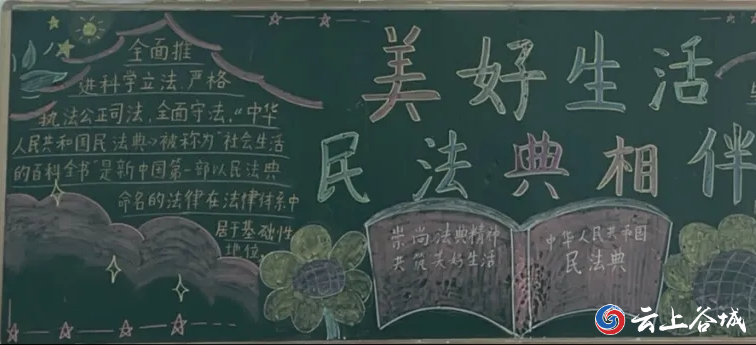 全面推
进科学立法、严格
执法公正司法，全面守法，《中华
人民共和国民法典》被称为"社会生活
的百科全书"是新中国第一部以民法典
命名的法律在法律体系中
居于基础性
地位
美好生活
民法典相伴
崇尚法典精神
共筑美好生活
中华人民共和国
民法典
云上谷城